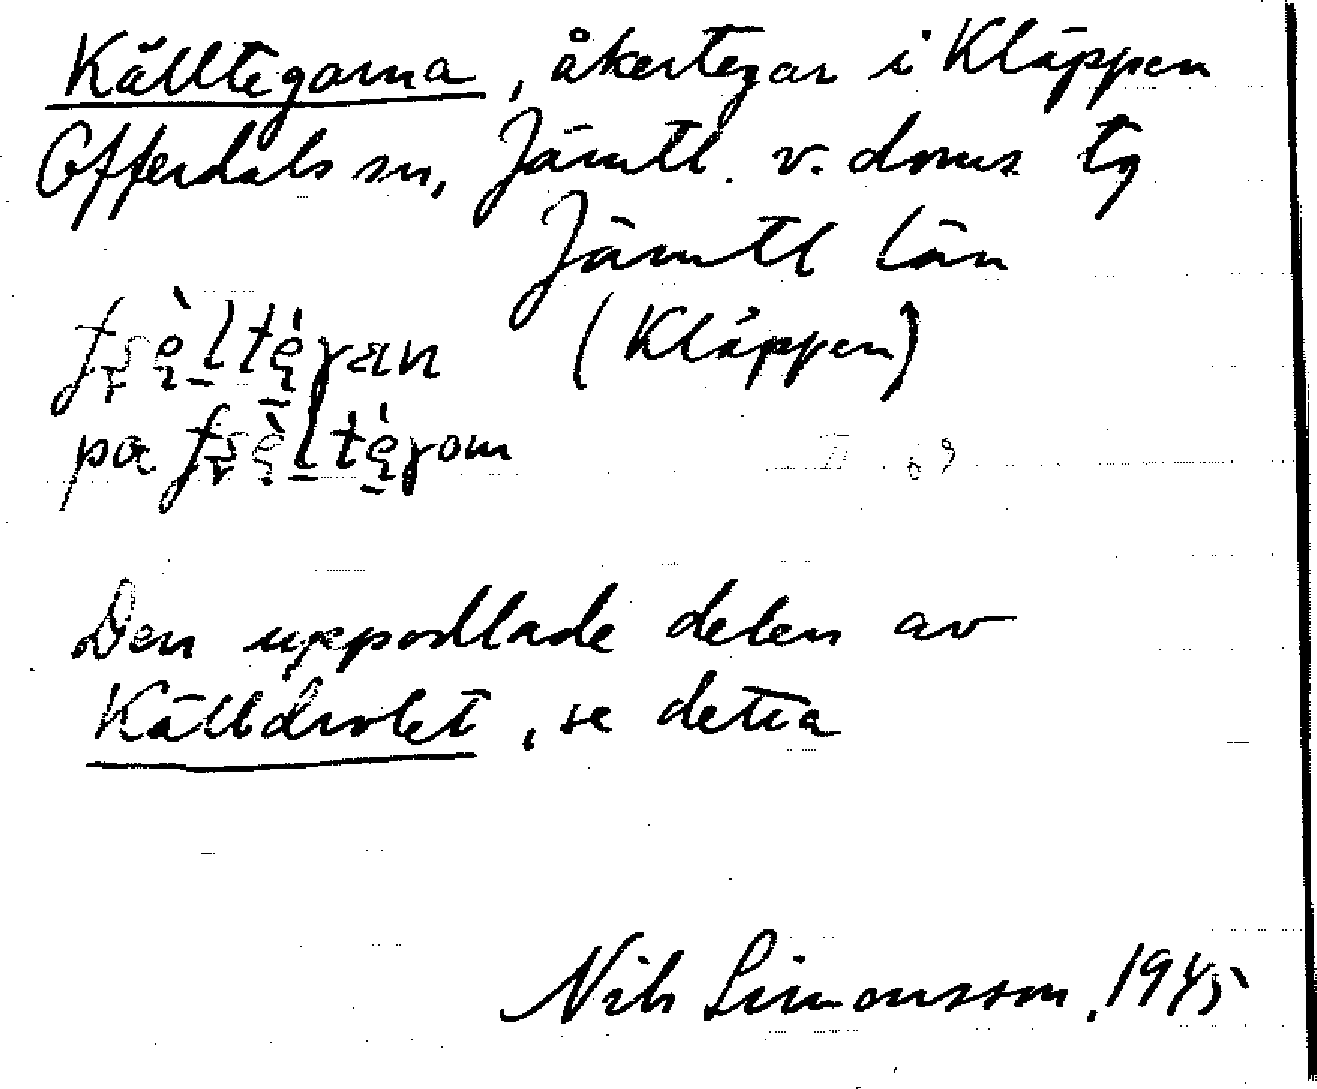 Källtegarna, åkertegar i Kläppen
Offerdals sn, Jämtl. v. doms tg
Jämtl län
(Kläppen)
på
Den uppodlade delen av
Källdrolet, se detta
Nils Simonsson. 1945